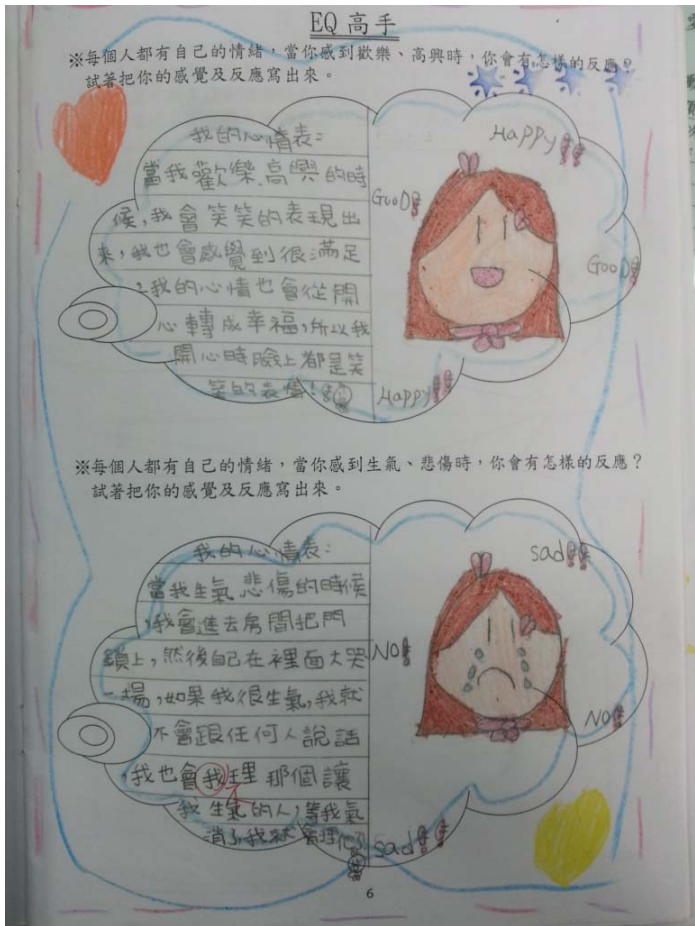 EQ高手
※每個人都有自己的情緒，當你感到歡樂、高興時，你會有怎樣的反應？
試著把你的感覺及反應寫出來。
我的心情表：
當我歡樂、高興的時
候，我會笑笑的表現出
來，我也會感覺到很滿足
，我的心情也會從開
心轉成幸福，所以我
開心時臉上都是笑
笑的表情！
Happy!!
GOOD!
GOOD!
Happy!!
※每個人都有自己的情緒，當你感到生氣、悲傷時，你會有怎樣的反應？
試著把你的感覺及反應寫出來。
我的心情表：
當我生氣悲傷的時候
，我會進去房間把門
鎖上，然後自己在裡面大哭
一場，如果我很生氣，我就
不會跟任何人說話
，我也會我理那個讓
我生氣的人，等我氣
消了，我就會理他了
sad!!
NO!
NO!
sad!!
6